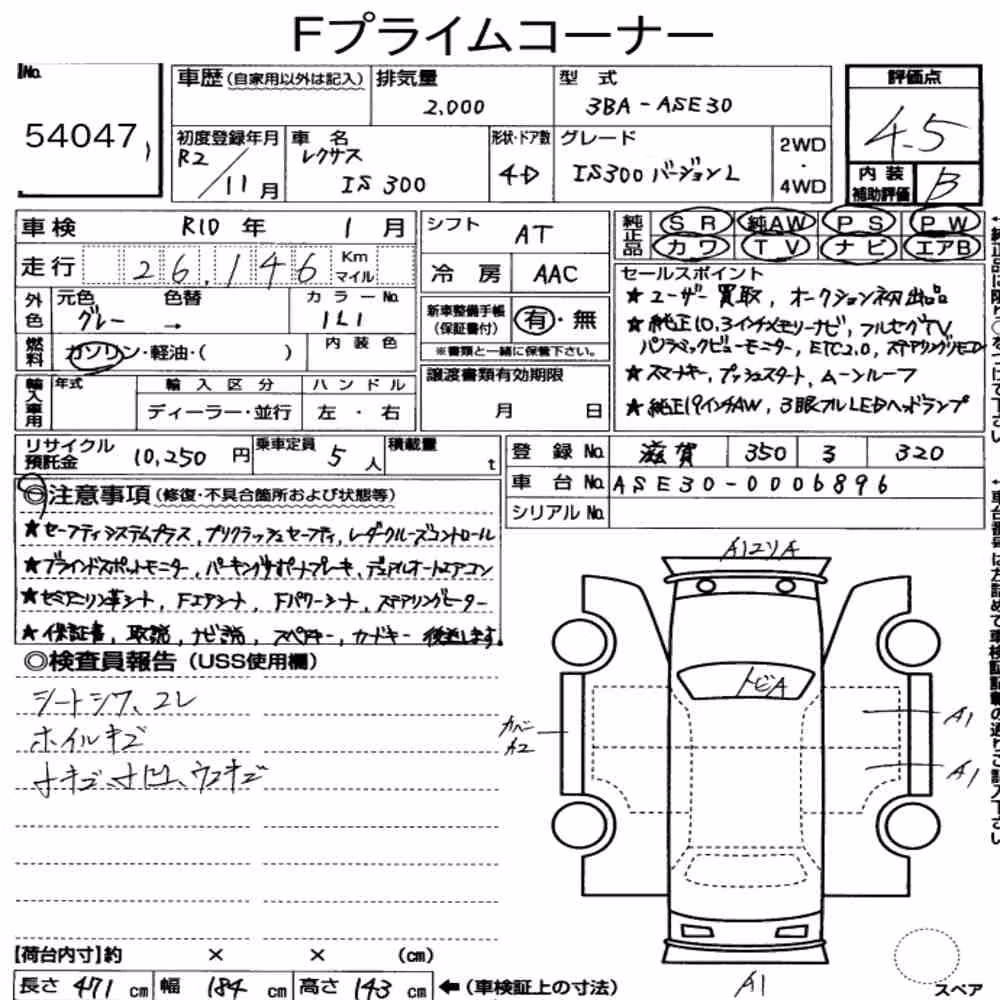 Fプライムコーナー
No.
54047
車歴(自家用以外は記入)
排気量
2,000
型 式
3BA-ASE30
評価点
4.5
内装補助評価
B
初度登録年月
R2/11月
車 名
レクサス
IS300
形状・ドア数
4D
グレード
IS300 バージョンL
2WD・4WD
車検 R10年 1月
走行 26,146 Km マイル
外色
元色 グレー
色替 →
カラーNo. 1L1
内装色
燃料 ガソリン・軽油・( )
輸入車用
年式
輸入区分
ディーラー・並行
ハンドル
左・右
シフト AT
冷房 AAC
新車整備手帳(保証書付)
有・無
※書類と一緒に保管下さい。
譲渡書類有効期限
月 日
純正品 SR 純AW PS PW
カワ TV ナビ エアB
セールスポイント
★ユーザー買取, オークション初出品
★純正10.3インチメモリーナビ, フルセグTV,
パノラミックビューモニター, ETC2.0, ステアリングリモコン
★スマートキー, プッシュスタート, ムーンルーフ
★純正19インチAW, 3眼フルLEDヘッドランプ
リサイクル預託金 10,250円
乗車定員 5人
積載量 t
登録No. 滋賀 350 ろ 320
車台No. ASE30-0006896
シリアルNo.
◎注意事項(修復・不具合箇所および状態等)
★セーフティシステムプラス, プリクラッシュセーフティ, レーダークルーズコントロール
★ブラインドスポットモニター, パーキングサポートブレーキ, デュアルオートエアコン
★セミアニリン革シート, Fエアシート, Fパワーシート, ステアリングヒーター
★保証書, 取説, ナビ説, スペアキー, カードキー 後送します.
◎検査員報告(USS使用欄)
シートシワ、コレ
ホイルキズ
小キズ、小凹、ウスキズ
A1エクリA
トビA
カバーA2
A1
A1
A1
スペア
【荷台内寸】約 × × (cm)
長さ 471 cm 幅 184 cm 高さ 143 cm ←(車検証上の寸法)